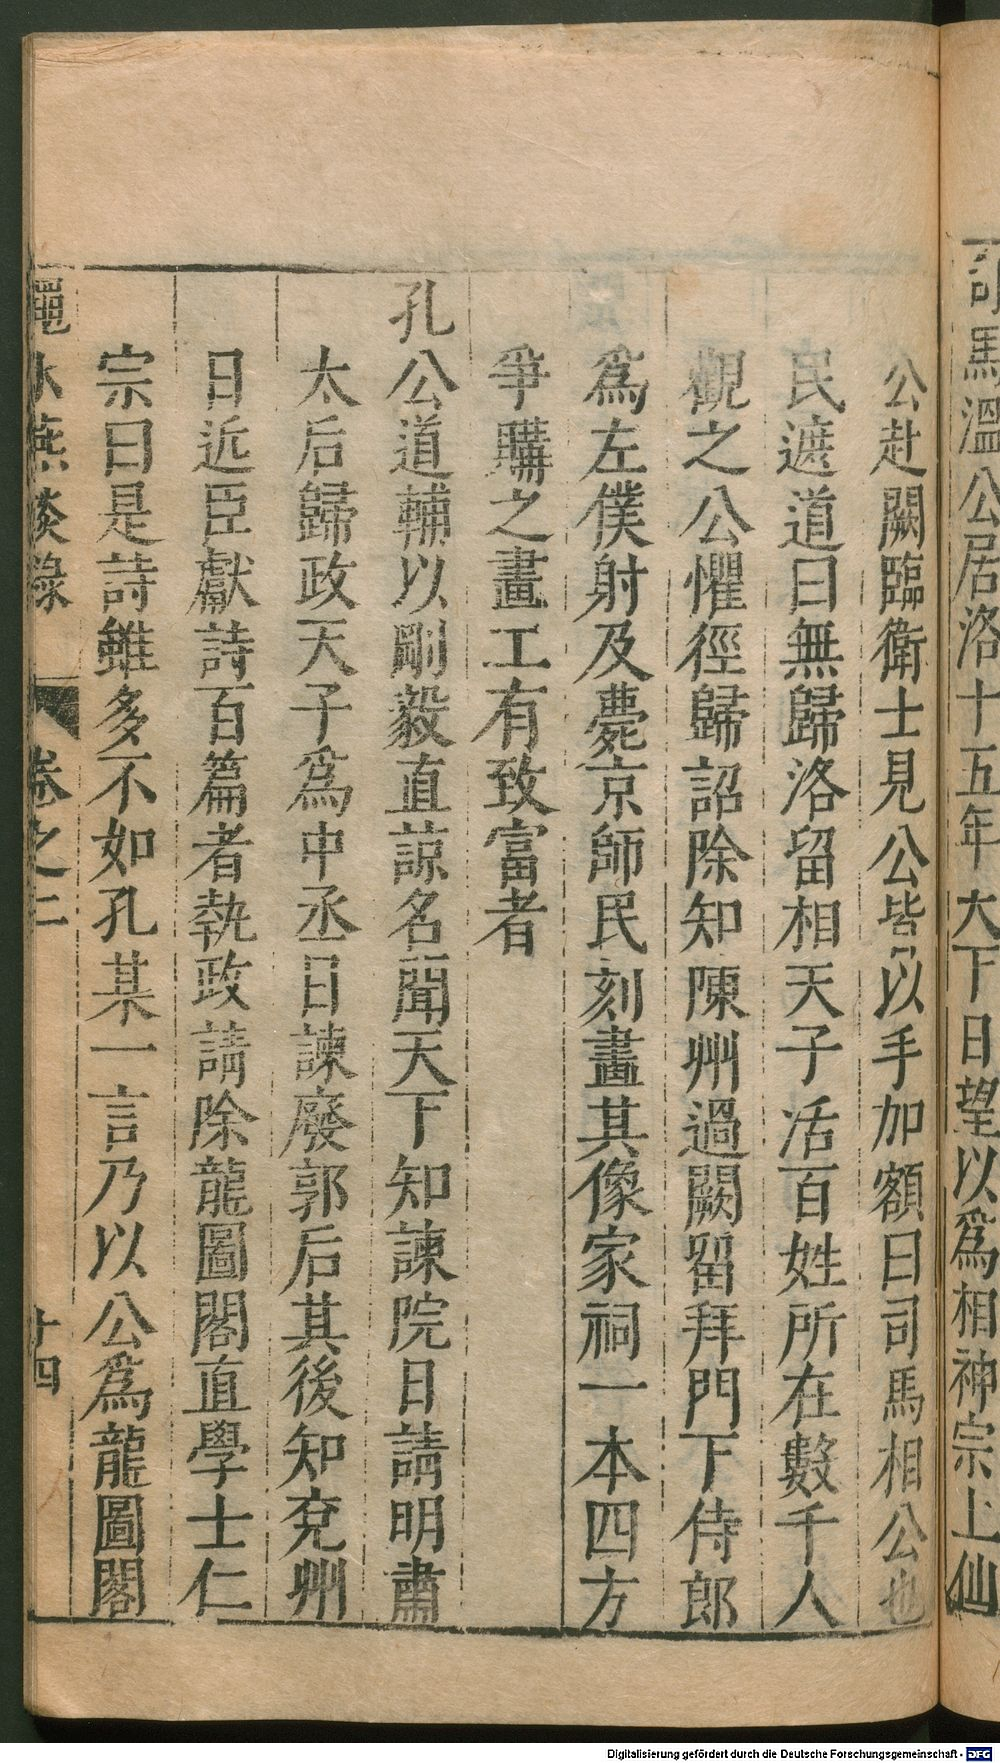 司馬溫公居洛十五年天下日望以爲相神宗上仙
公赴闕臨衛士見公皆以手加額曰司馬相公也
民遮道曰無歸洛留相天子活百姓所在數千人
觀之公懼徑歸詔除知陳州過闕留拜門下侍郎
爲左僕射及薨京師民刻畫其像家祠一本四方
爭購之畫工有致富者
孔公道輔以剛毅直諒名聞天下知諫院日請明肅
太后歸政天子爲中丞日諫廢郭后其後知兗州
日近臣獻詩百篇者執政請除龍圖閣直學士仁
宗曰是詩雖多不如孔某一言乃以公爲龍圖閣
澠水燕談錄 卷之二 十四
Digitalisierung gefördert durch die Deutsche Forschungsgemeinschaft - DFG